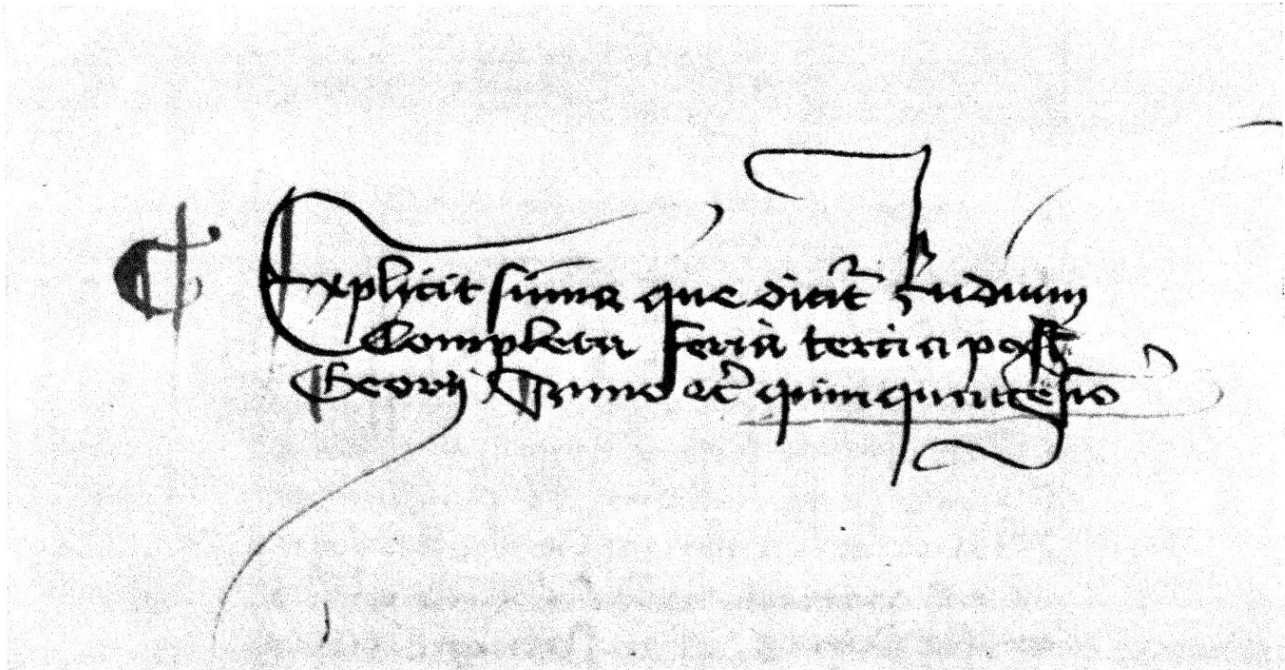 Explicit suma que dicit̃ Rudium
Completa feria tercia post
Georij Anno etc̃ quinquagesiō